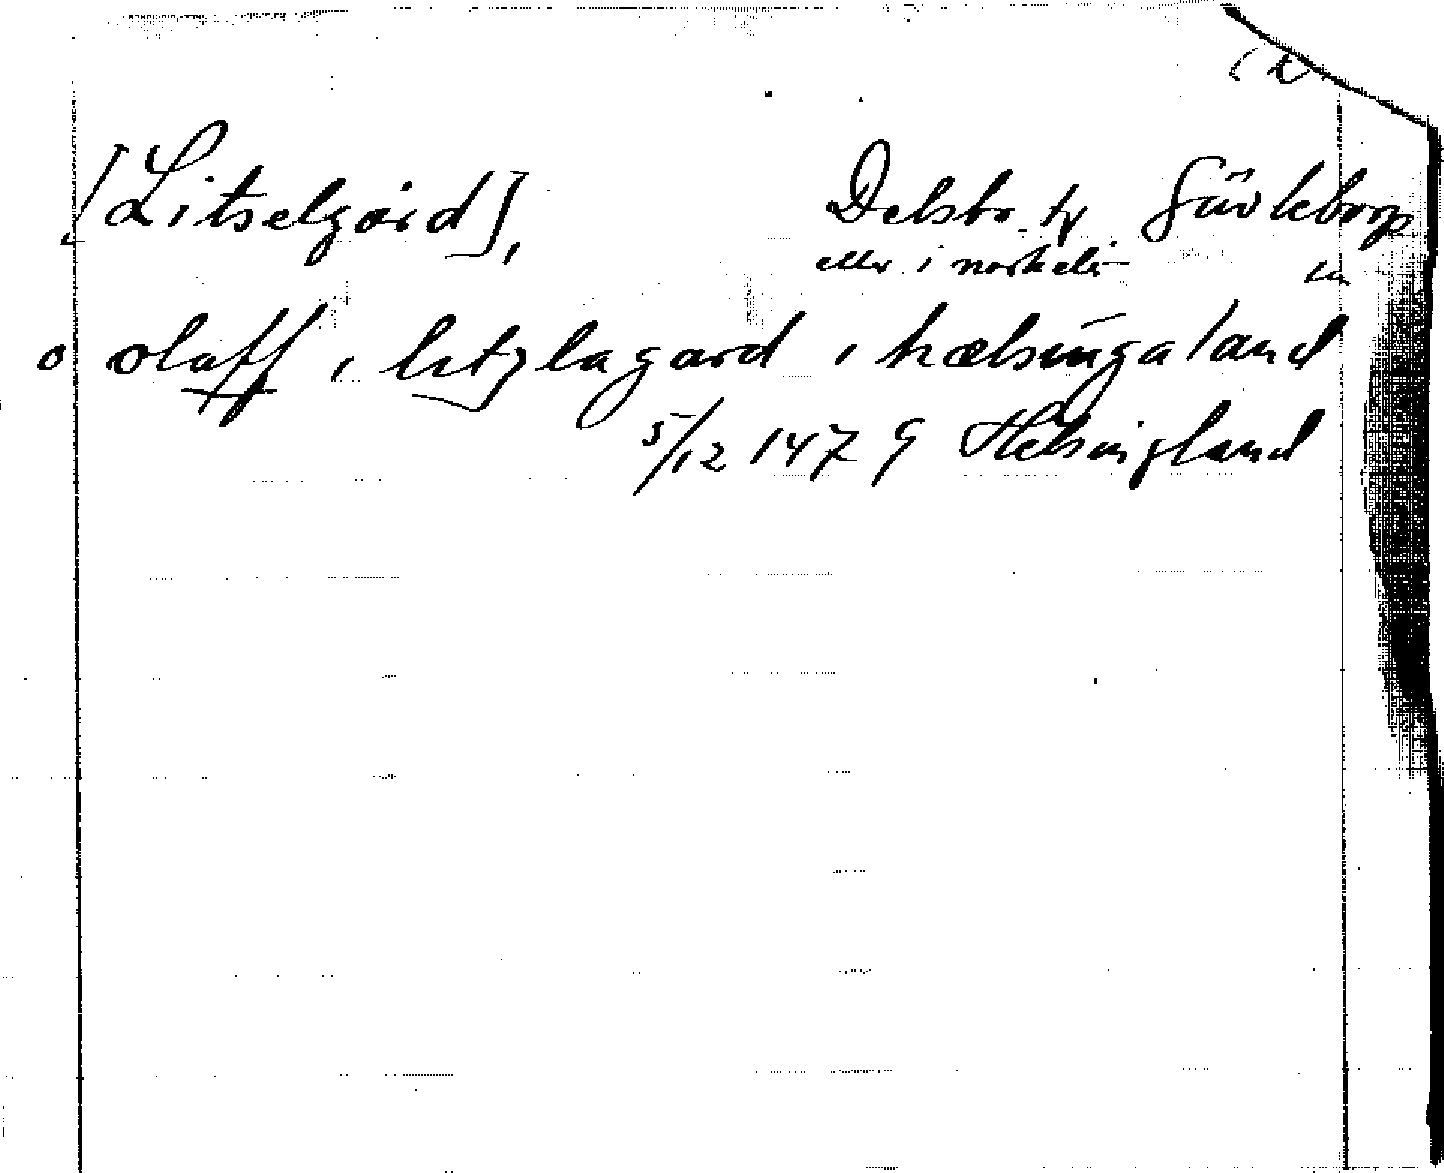 [Litselgård], Delsbo tg Gävleborg
eller i närheten län
o olaff i litzlagard i hælsingaland
5/12 1479 Helsingland